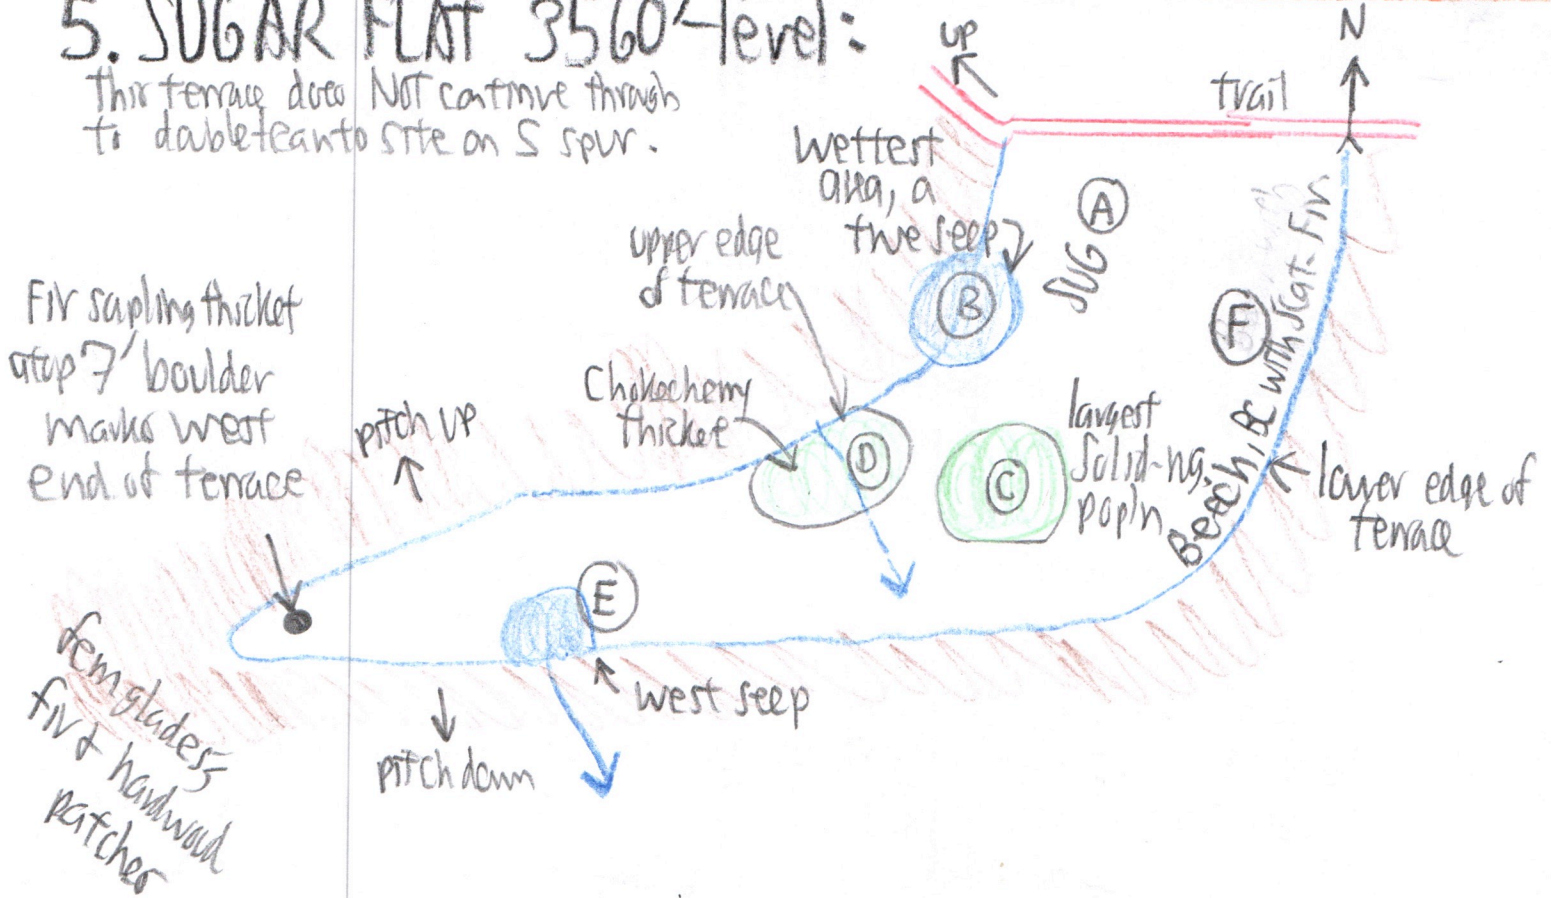 5. SUGAR FLAT 3560'-level:
This terrace does NOT continue through
to double leanto site on S spur.
UP
N
trail
Wettest
area, a
true seep
SUG
A
upper edge
of terrace
B
F
Fir sapling thicket
atop 7' boulder
marks west
end of terrace
Chokecherry
thicket
pitch up
D
C
largest
solid-ng.
pop'n
Beech, BC with scat. Fir
lower edge of
terrace
E
west seep
pitch down
fern glades,
fir & hardwood
patches